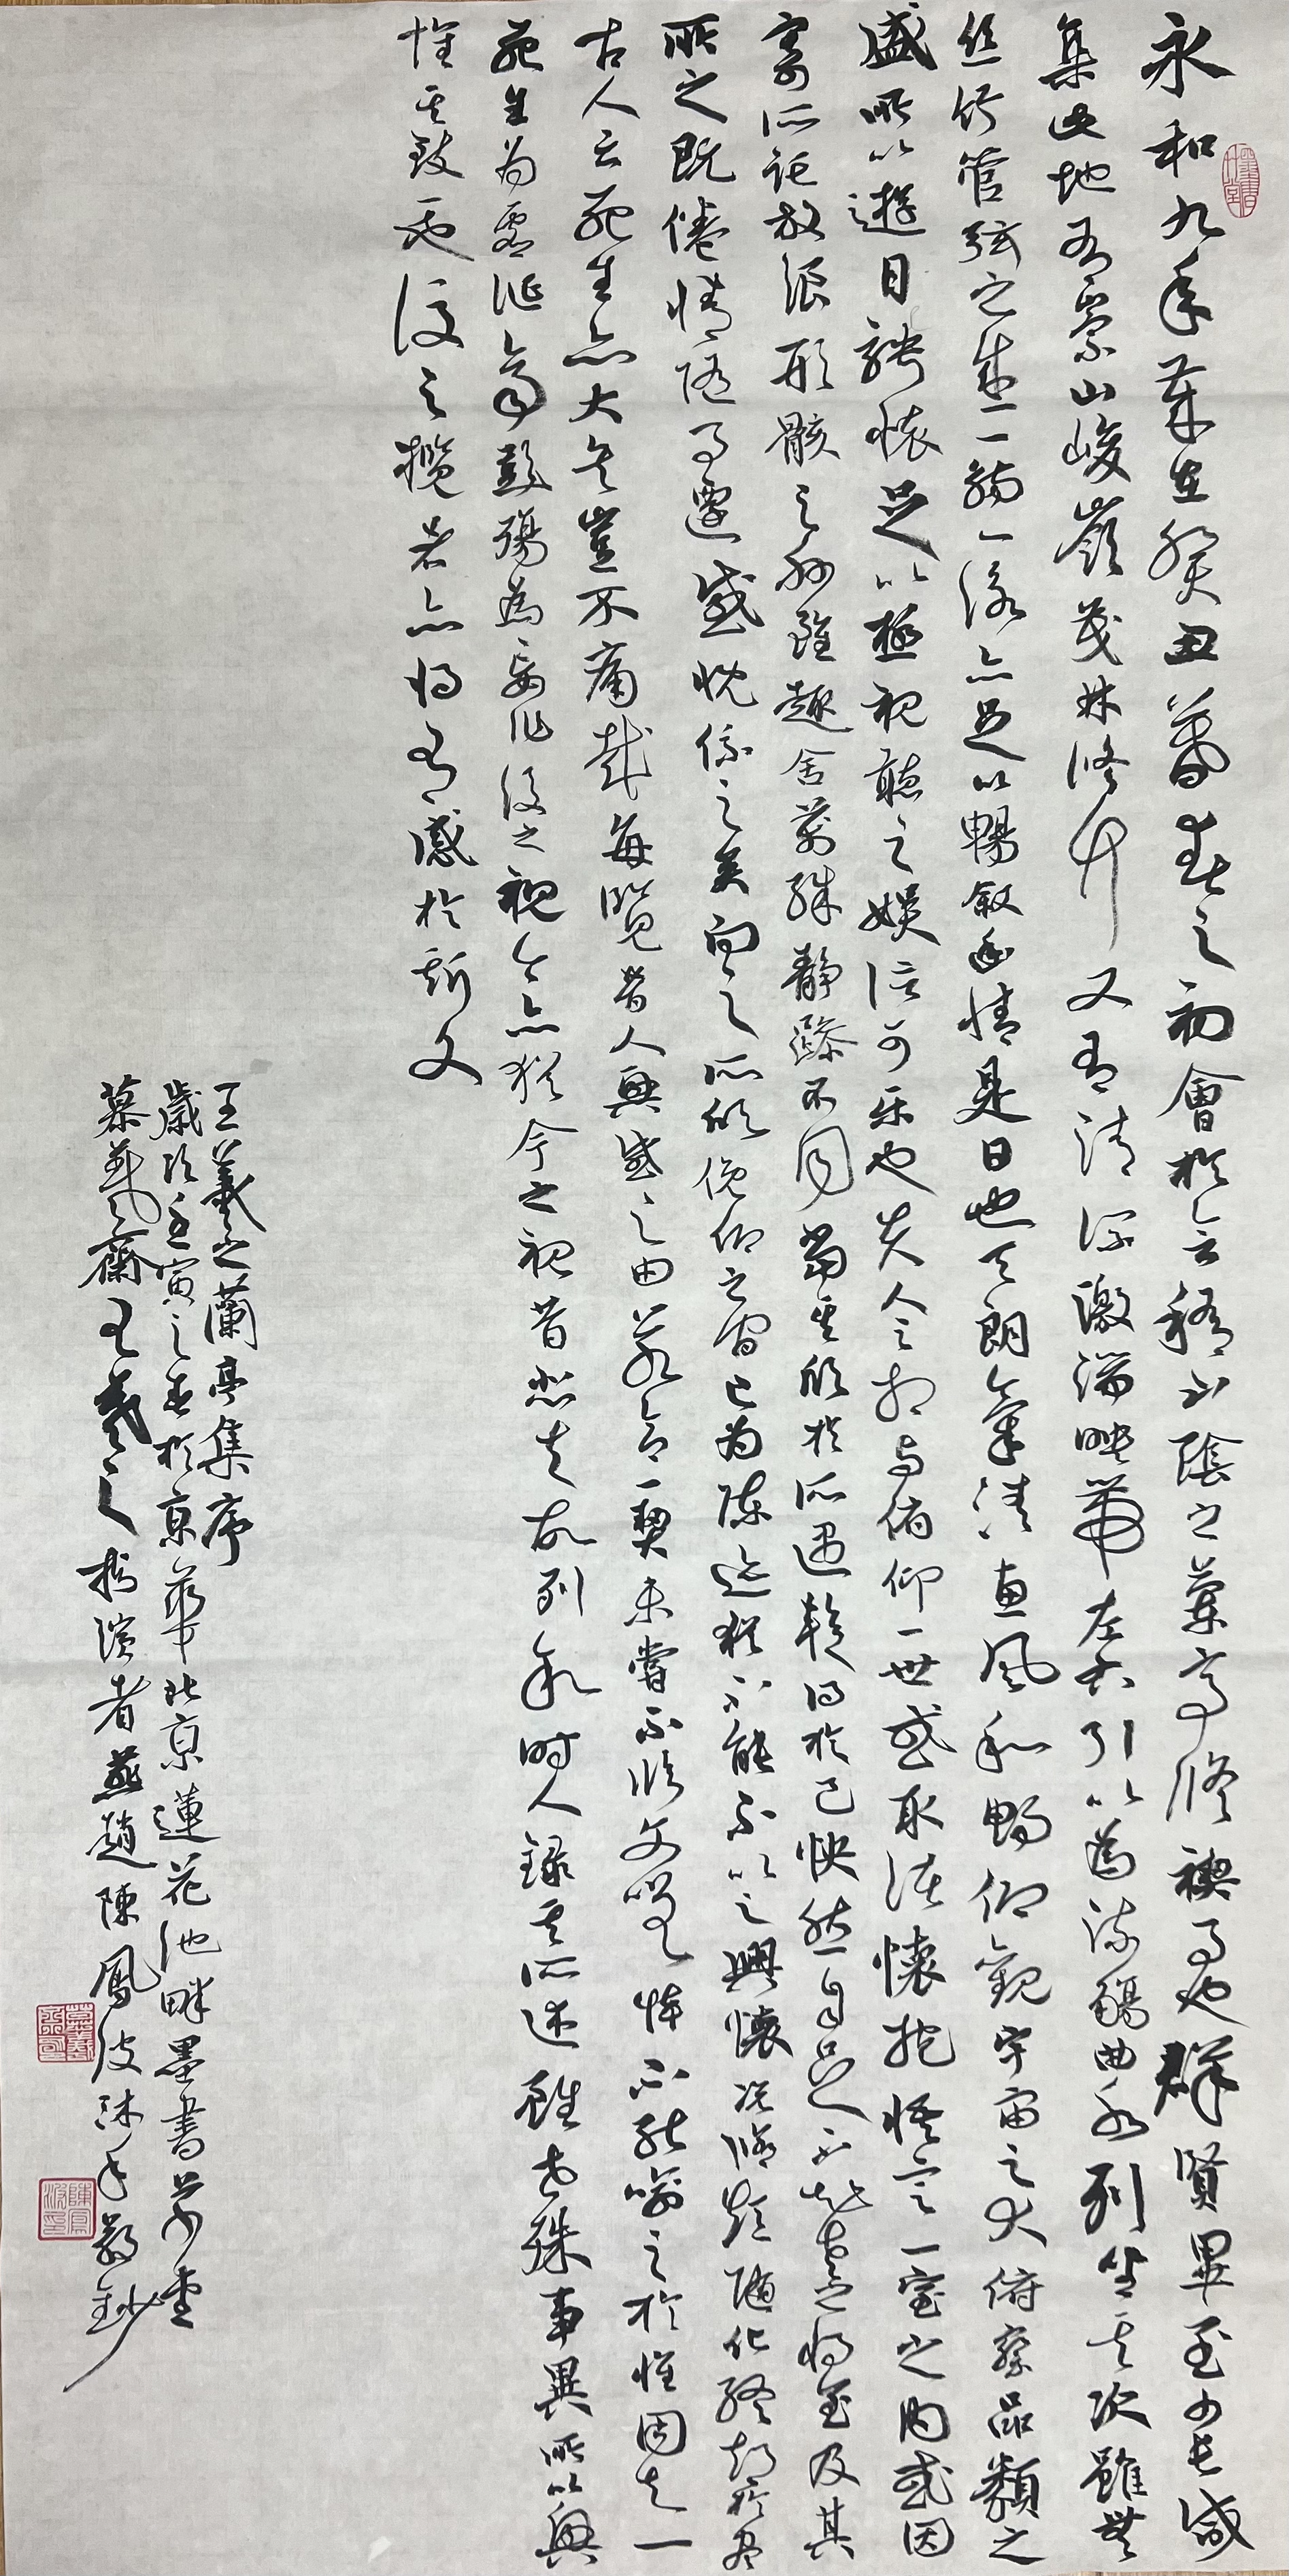 永和九年歲在癸丑暮春之初會於會稽山陰之蘭亭修禊事也群賢畢至少長咸
集此地有崇山峻嶺茂林修竹又有清流激湍映帶左右引以為流觴曲水列坐其次雖無
絲竹管弦之盛一觴一詠亦足以暢敘幽情是日也天朗氣清惠風和暢仰觀宇宙之大俯察品類之
盛所以遊目騁懷足以極視聽之娛信可樂也夫人之相與俯仰一世或取諸懷抱悟言一室之內或因
寄所託放浪形骸之外雖趣舍萬殊靜躁不同當其欣於所遇暫得於己快然自足不知老之將至及其
所之既倦情隨事遷感慨係之矣向之所欣俛仰之間已為陳迹猶不能不以之興懷況修短隨化終期於盡
古人云死生亦大矣豈不痛哉每覽昔人興感之由若合一契未嘗不臨文嗟悼不能喻之於懷固知一
死生為虛誕齊彭殤為妄作後之視今亦猶今之視昔悲夫故列敘時人錄其所述雖世殊事異所以興
懷其致一也後之攬者亦將有感於斯文
王羲之蘭亭集序
歲次壬寅之春於京華北京蓮花池畔墨書草堂
慕羲齋王羲之推演者燕趙陳鳳波沐手敬鈔